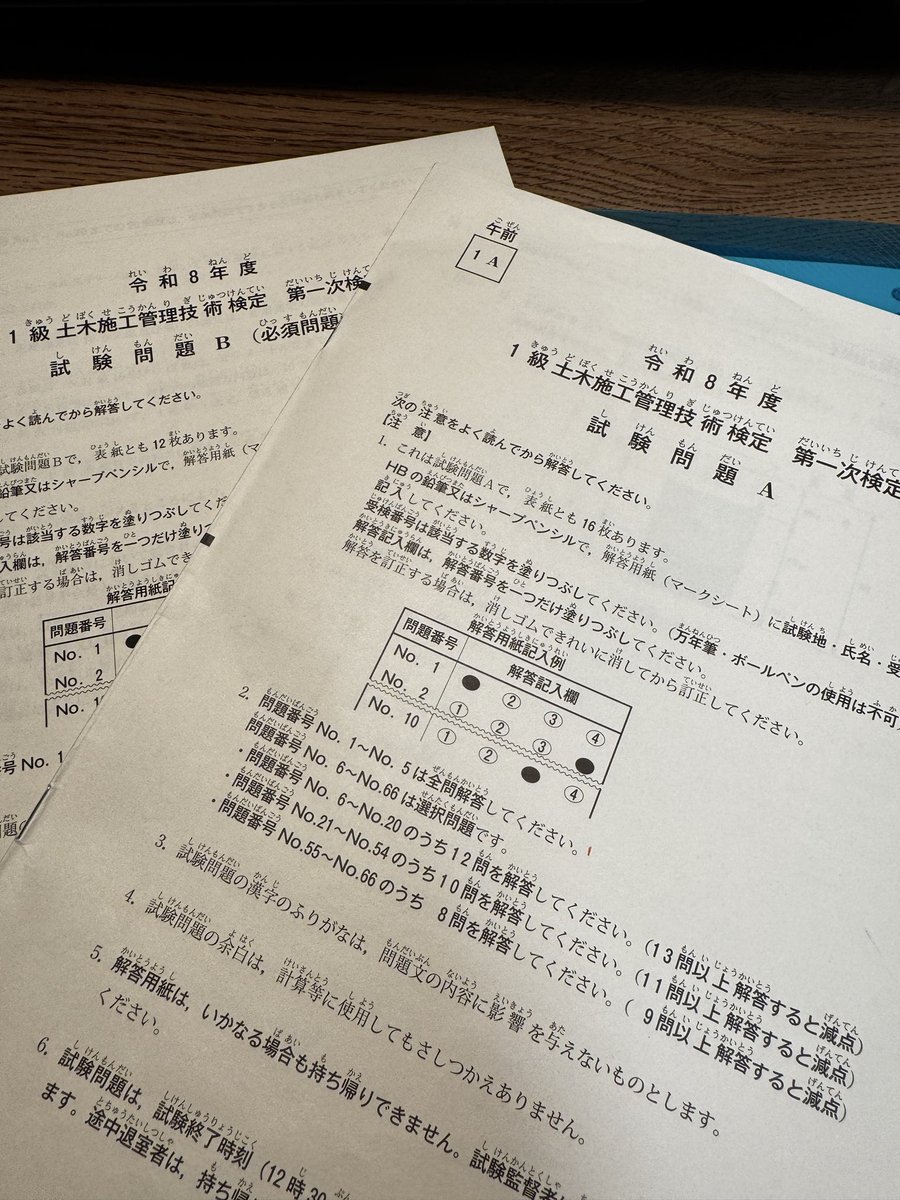 令和8年度
1級土木施工管理技術検定 第一次検
試験問題B（必須問題
よく読んでから解答してください。
試験問題Bで，表紙とも12枚あります。
鉛筆又はシャープペンシルで，解答用紙（マー
してください。
号は該当する数字を塗りつぶしてくだ
入欄は，解答番号を一つだけ塗りつ
訂正する場合は，消しゴムでき
解答用紙記
問題番号
No. 1
No. 2
No. 1
番号 No. 1
午前
1 A
令和8年度
1級土木施工管理技術検定 第一次検定
試験問題A
次の注意をよく読んでから解答してください。
[注 意]
1. これは試験問題Aで，表紙とも16枚あります。
HBの鉛筆又はシャープペンシルで，解答用紙（マークシート）に試験地・氏名・受
記入してください。
受検番号は該当する数字を塗りつぶしてください。（万年筆・ボールペンの使用は不可）
解答記入欄は，解答番号を一つだけ塗りつぶしてください。
解答を訂正する場合は，消しゴムできれいに消してから訂正してください。
解答用紙記入例
問題番号 解答記入欄
No. 1 ● ② ③ ④
No. 2 ① ② ③ ●
No. 10 ① ② ● ④
2. 問題番号 No. 1～No. 5は全問解答してください。
問題番号 No. 6～No.66は選択問題です。
・問題番号 No. 6～No.20のうち12問を解答してください。（13問以上解答すると減点）
・問題番号 No.21～No.54のうち10問を解答してください。（11問以上解答すると減点）
・問題番号 No.55～No.66のうち 8問を解答してください。（ 9問以上解答すると減点）
3. 試験問題の漢字のふりがなは，問題文の内容に影響を与えないものとします。
4. 試験問題の余白は，計算等に使用してもさしつかえありません。
5. 解答用紙は，いかなる場合も持ち帰りできません。試験監督者
ください。
6. 試験問題は，試験終了時刻（12時30
ます。途中退室者は，持ち帰